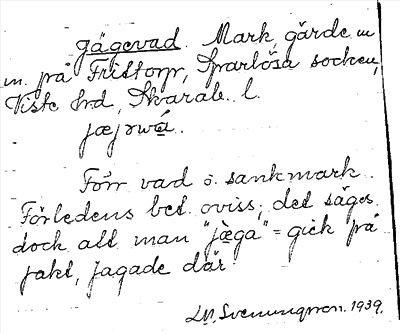 gägevad. Mark, gärde m
m. på Fristorp, Sparlösa socken,
Viste hrd, Skarab. l.
jæjɔwá.
Förr vad o. sankmark.
Förledens bet. oviss; det säges
dock att man "jèga" = gick på
jakt, jagade där.
1939.